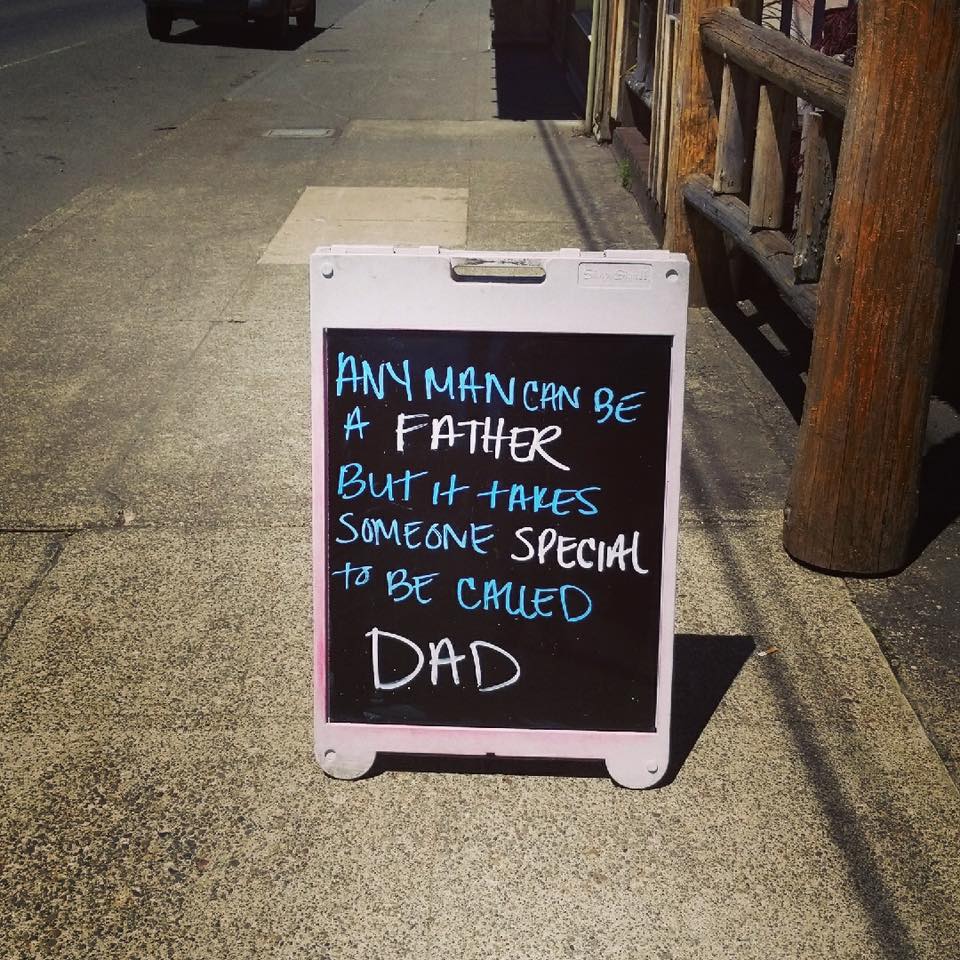 ANY MAN CAN BE
A FATHER
BUT it tAKES
SOMEONE SPECIAL
to BE CALLED
DAD